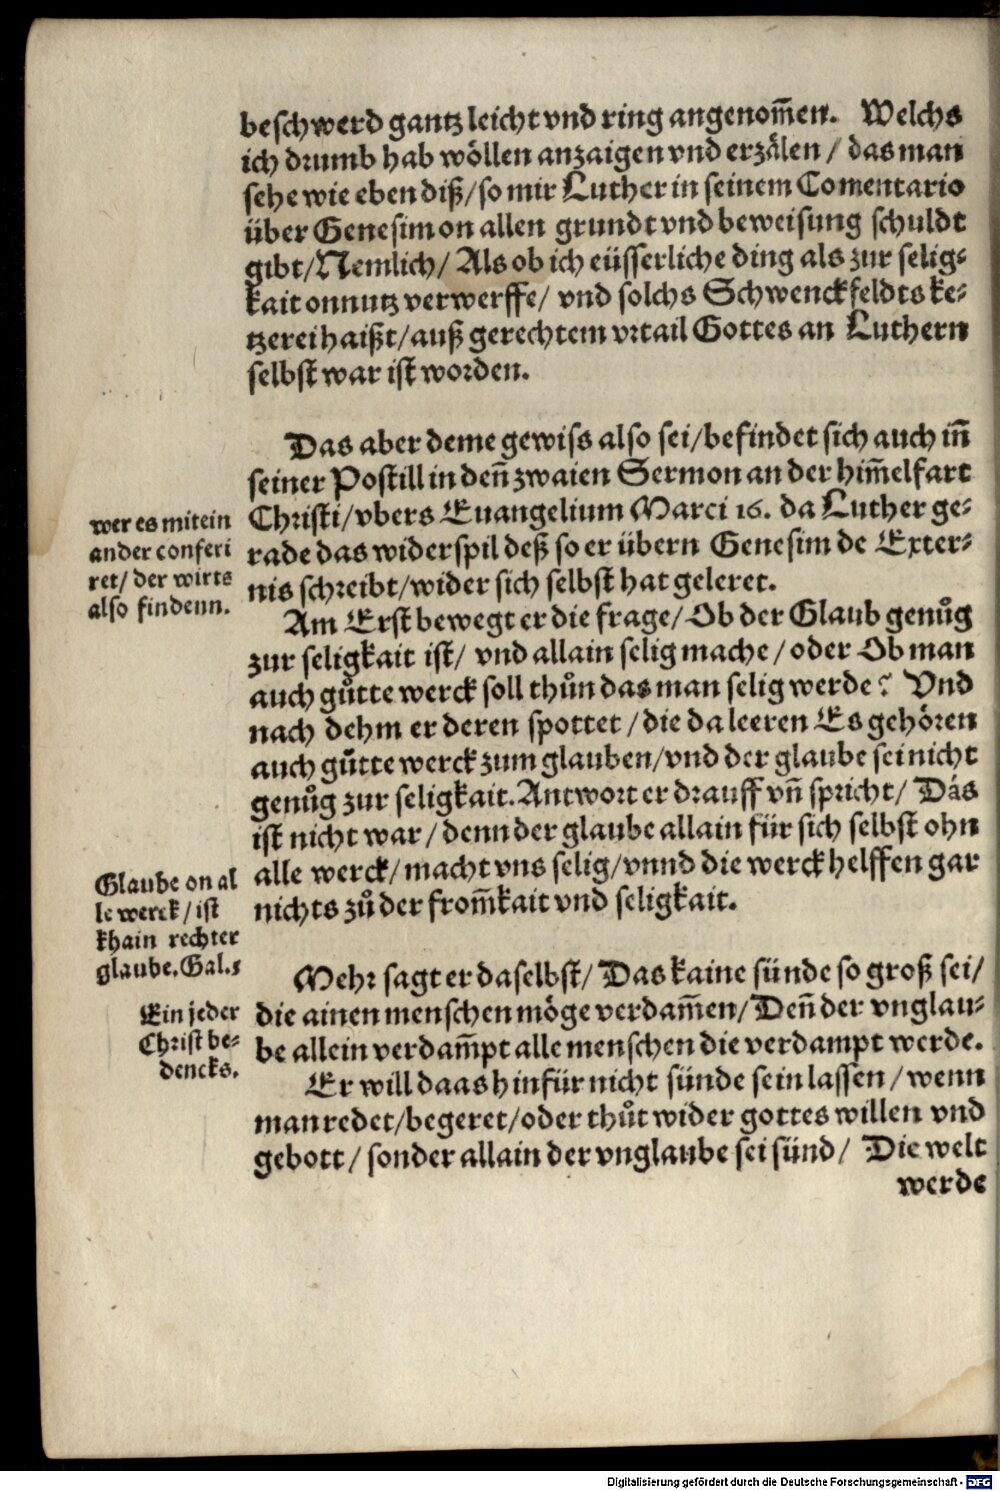 beschwerd gantz leicht vnd ring angenom̃en. Welchs
ich drumb hab wöllen anzaigen vnd erzälen / das man
sehe wie eben diß / so mir Luther in seinem Comentario
über Genesim on allen grundt vnd beweisung schuldt
gibt / Nemlich / Als ob ich eüsserliche ding als zur selig-
kait onnutz verwerffe / vnd solchs Schwenckfeldts ke-
tzerei haißt / auß gerechtem vrtail Gottes an Luthern
selbst war ist worden.
Das aber deme gewiss also sei / befindet sich auch iñ
seiner Postill in deñ zwaien Sermon an der him̃elfart
Christi / vbers Euangelium Marci 16. da Luther ge-
rade das widerspil deß so er übern Genesim de Exter-
nis schreibt / wider sich selbst hat geleret.
wer es mitein
ander conferi
ret / der wirts
also findenn.
Am Erst bewegt er die frage / Ob der Glaub genůg
zur seligkait ist / vnd allain selig mache / oder Ob man
auch gůtte werck soll thůn das man selig werde? Vnd
nach dehm er deren spottet / die da leeren Es gehören
auch gůtte werck zum glauben / vnd der glaube sei nicht
genůg zur seligkait. Antwort er drauff vñ spricht / Das
ist nicht war / denn der glaube allain für sich selbst ohn
alle werck / macht vns selig / vnnd die werck helffen gar
nichts zů der from̃kait vnd seligkait.
Glaube on al
le werck / ist
khain rechter
glaube. Gal. 5
Mehr sagt er daselbst / Das kaine sünde so groß sei /
die ainen menschen möge verdam̃en / Deñ der vnglau-
be allein verdam̃pt alle menschen die verdampt werde.
Ein jeder
Christ be-
dencks.
Er will daas hinfür nicht sünde sein lassen / wenn
man redet / begeret / oder thůt wider gottes willen vnd
gebott / sonder allain der vnglaube sei sünd / Die welt
werde
Digitalisierung gefördert durch die Deutsche Forschungsgemeinschaft - DFG